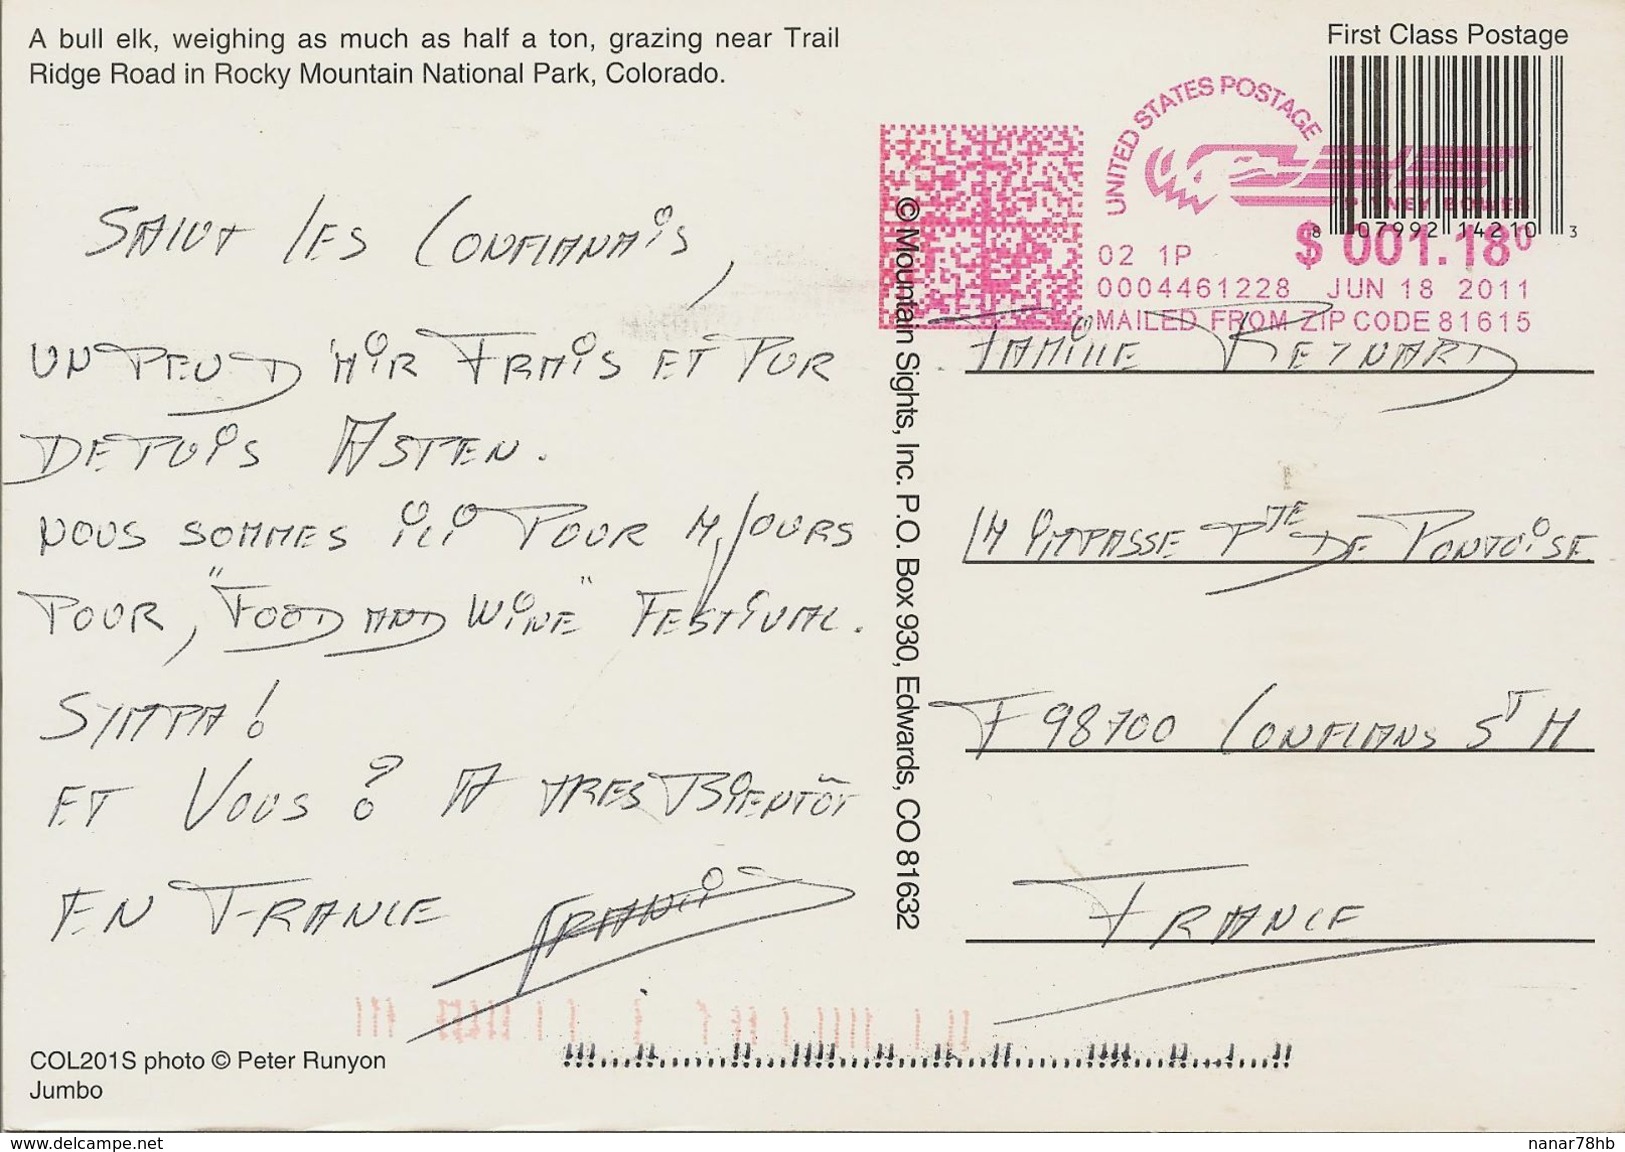 A bull elk, weighing as much as half a ton, grazing near Trail
Ridge Road in Rocky Mountain National Park, Colorado.
SALUT LES CONFLANAIS,
UN PEU D'AIR FRAIS ET PUR
DEPUIS ASPEN.
NOUS SOMMES ICI POUR 4 JOURS
POUR, "FOOD AND WINE" FESTIVAL.
SYMPA!
ET VOUS? A TRES BIENTÔT
EN FRANCE
COL201S photo © Peter Runyon
Jumbo
© Mountain Sights, Inc. P.O. Box 930, Edwards, CO 81632
First Class Postage
8 07992 14210 3
UNITED STATES POSTAGE
PITNEY BOWES
02 1P
$ 001.18⁰
0004461228 JUN 18 2011
MAILED FROM ZIP CODE 81615
FAMILLE REYNARD
14 IMPASSE PTE DE PONTOISE
F 98700 CONFLANS ST H
FRANCE
www.delcampe.net
nanar78hb